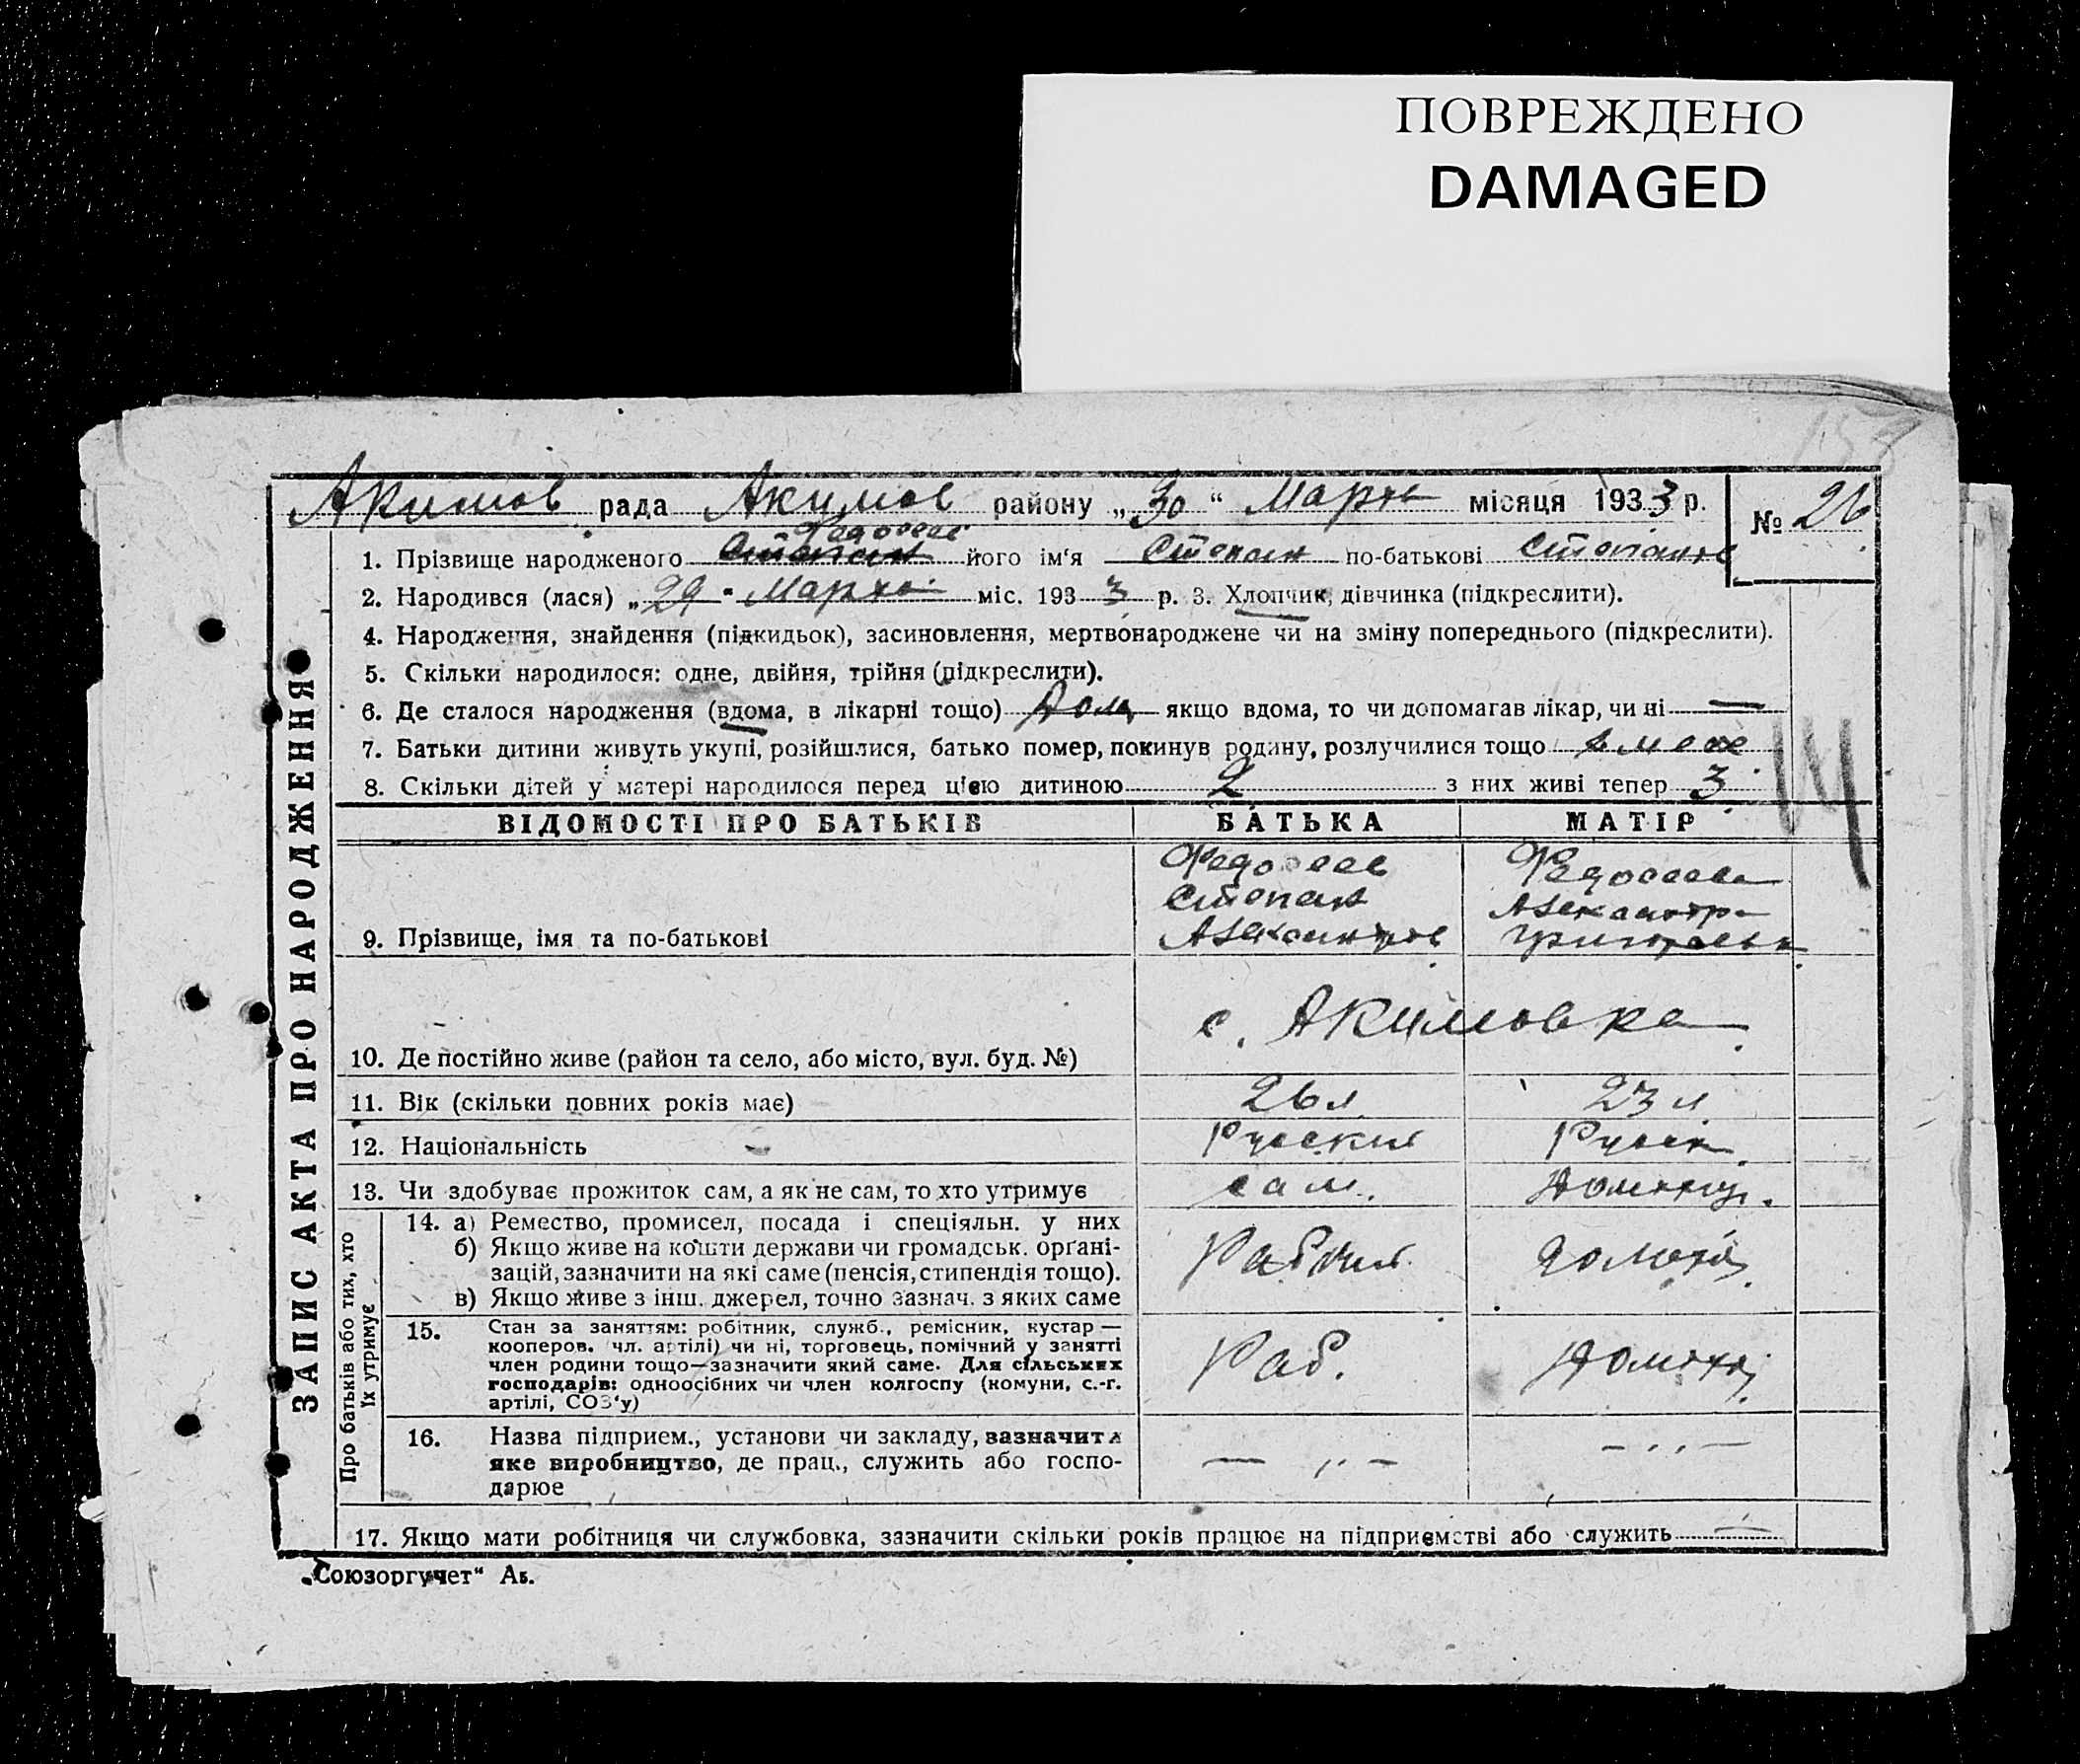 ПОВРЕЖДЕНО
DAMAGED
Акимов рада Акимов району „30“ Марта місяця 1933 р. № 26
ЗАПИС АКТА ПРО НАРОДЖЕННЯ
Федосеев
1. Прізвище народженого Степан його ім‘я Степан по-батькові Степанов
2. Народився (лася) „29“ Марта міс. 1933 р. 3. Хлопчик, дівчинка (підкреслити).
4. Народження, знайдення (підкидьок), засиновлення, мертвонароджене чи на зміну попереднього (підкреслити).
5. Скільки народилося: одне, двійня, трійня (підкреслити).
6. Де сталося народження (вдома, в лікарні тощо) Дома якщо вдома, то чи допомагав лікар, чи ні —
7. Батьки дитини живуть укупі, розійшлися, батько помер, покинув родину, розлучилися тощо
8. Скільки дітей у матері народилося перед цією дитиною 2 з них живі тепер 3
ВІДОМОСТІ ПРО БАТЬКІВ БАТЬКА МАТІР
Федосеев Федосеева
Степан Александра
9. Прізвище, імя та по-батькові Александров Григорьевн
с. Акимовка
10. Де постійно живе (район та село, або місто, вул. буд. №)
11. Вік (скільки повних років має) 26 л. 23 л
12. Національність Руский Руск.
13. Чи здобуває прожиток сам, а як не сам, то хто утримує сам.
Про батьків або тих, хто
їх утримує
14. а) Ремество, промисел, посада і спеціяльн. у них
б) Якщо живе на кошти держави чи громадськ. орґані-
зацій, зазначити на які саме (пенсія, стипендія тощо).
в) Якщо живе з інш. джерел, точно зазнач. з яких саме
15. Стан за заняттям: робітник, служб., ремісник, кустар —
кооперов. чл. артілі) чи ні, торговець, помічний у занятті
член родини тощо—зазначити який саме. Для сільських
господарів: одноосібних чи член колгоспу (комуни, с.-г.
артілі, СОЗ‘у) Раб.
16. Назва підприєм., установи чи закладу, зазначити
яке виробництво, де прац., служить або госпо-
дарює
17. Якщо мати робітниця чи службовка, зазначити скільки років працює на підприємстві або служить
„Союзоргучет“ Ав.